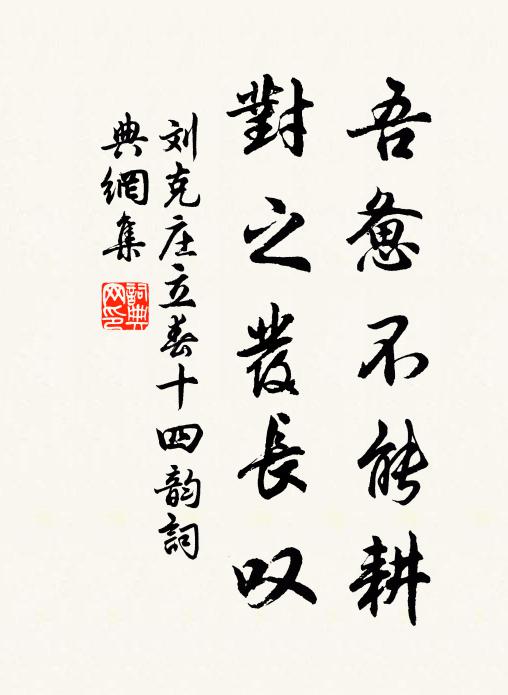 吾惫不能耕
對之發長叹
刘克庄立春十四韵詞
典網集
詞典网印